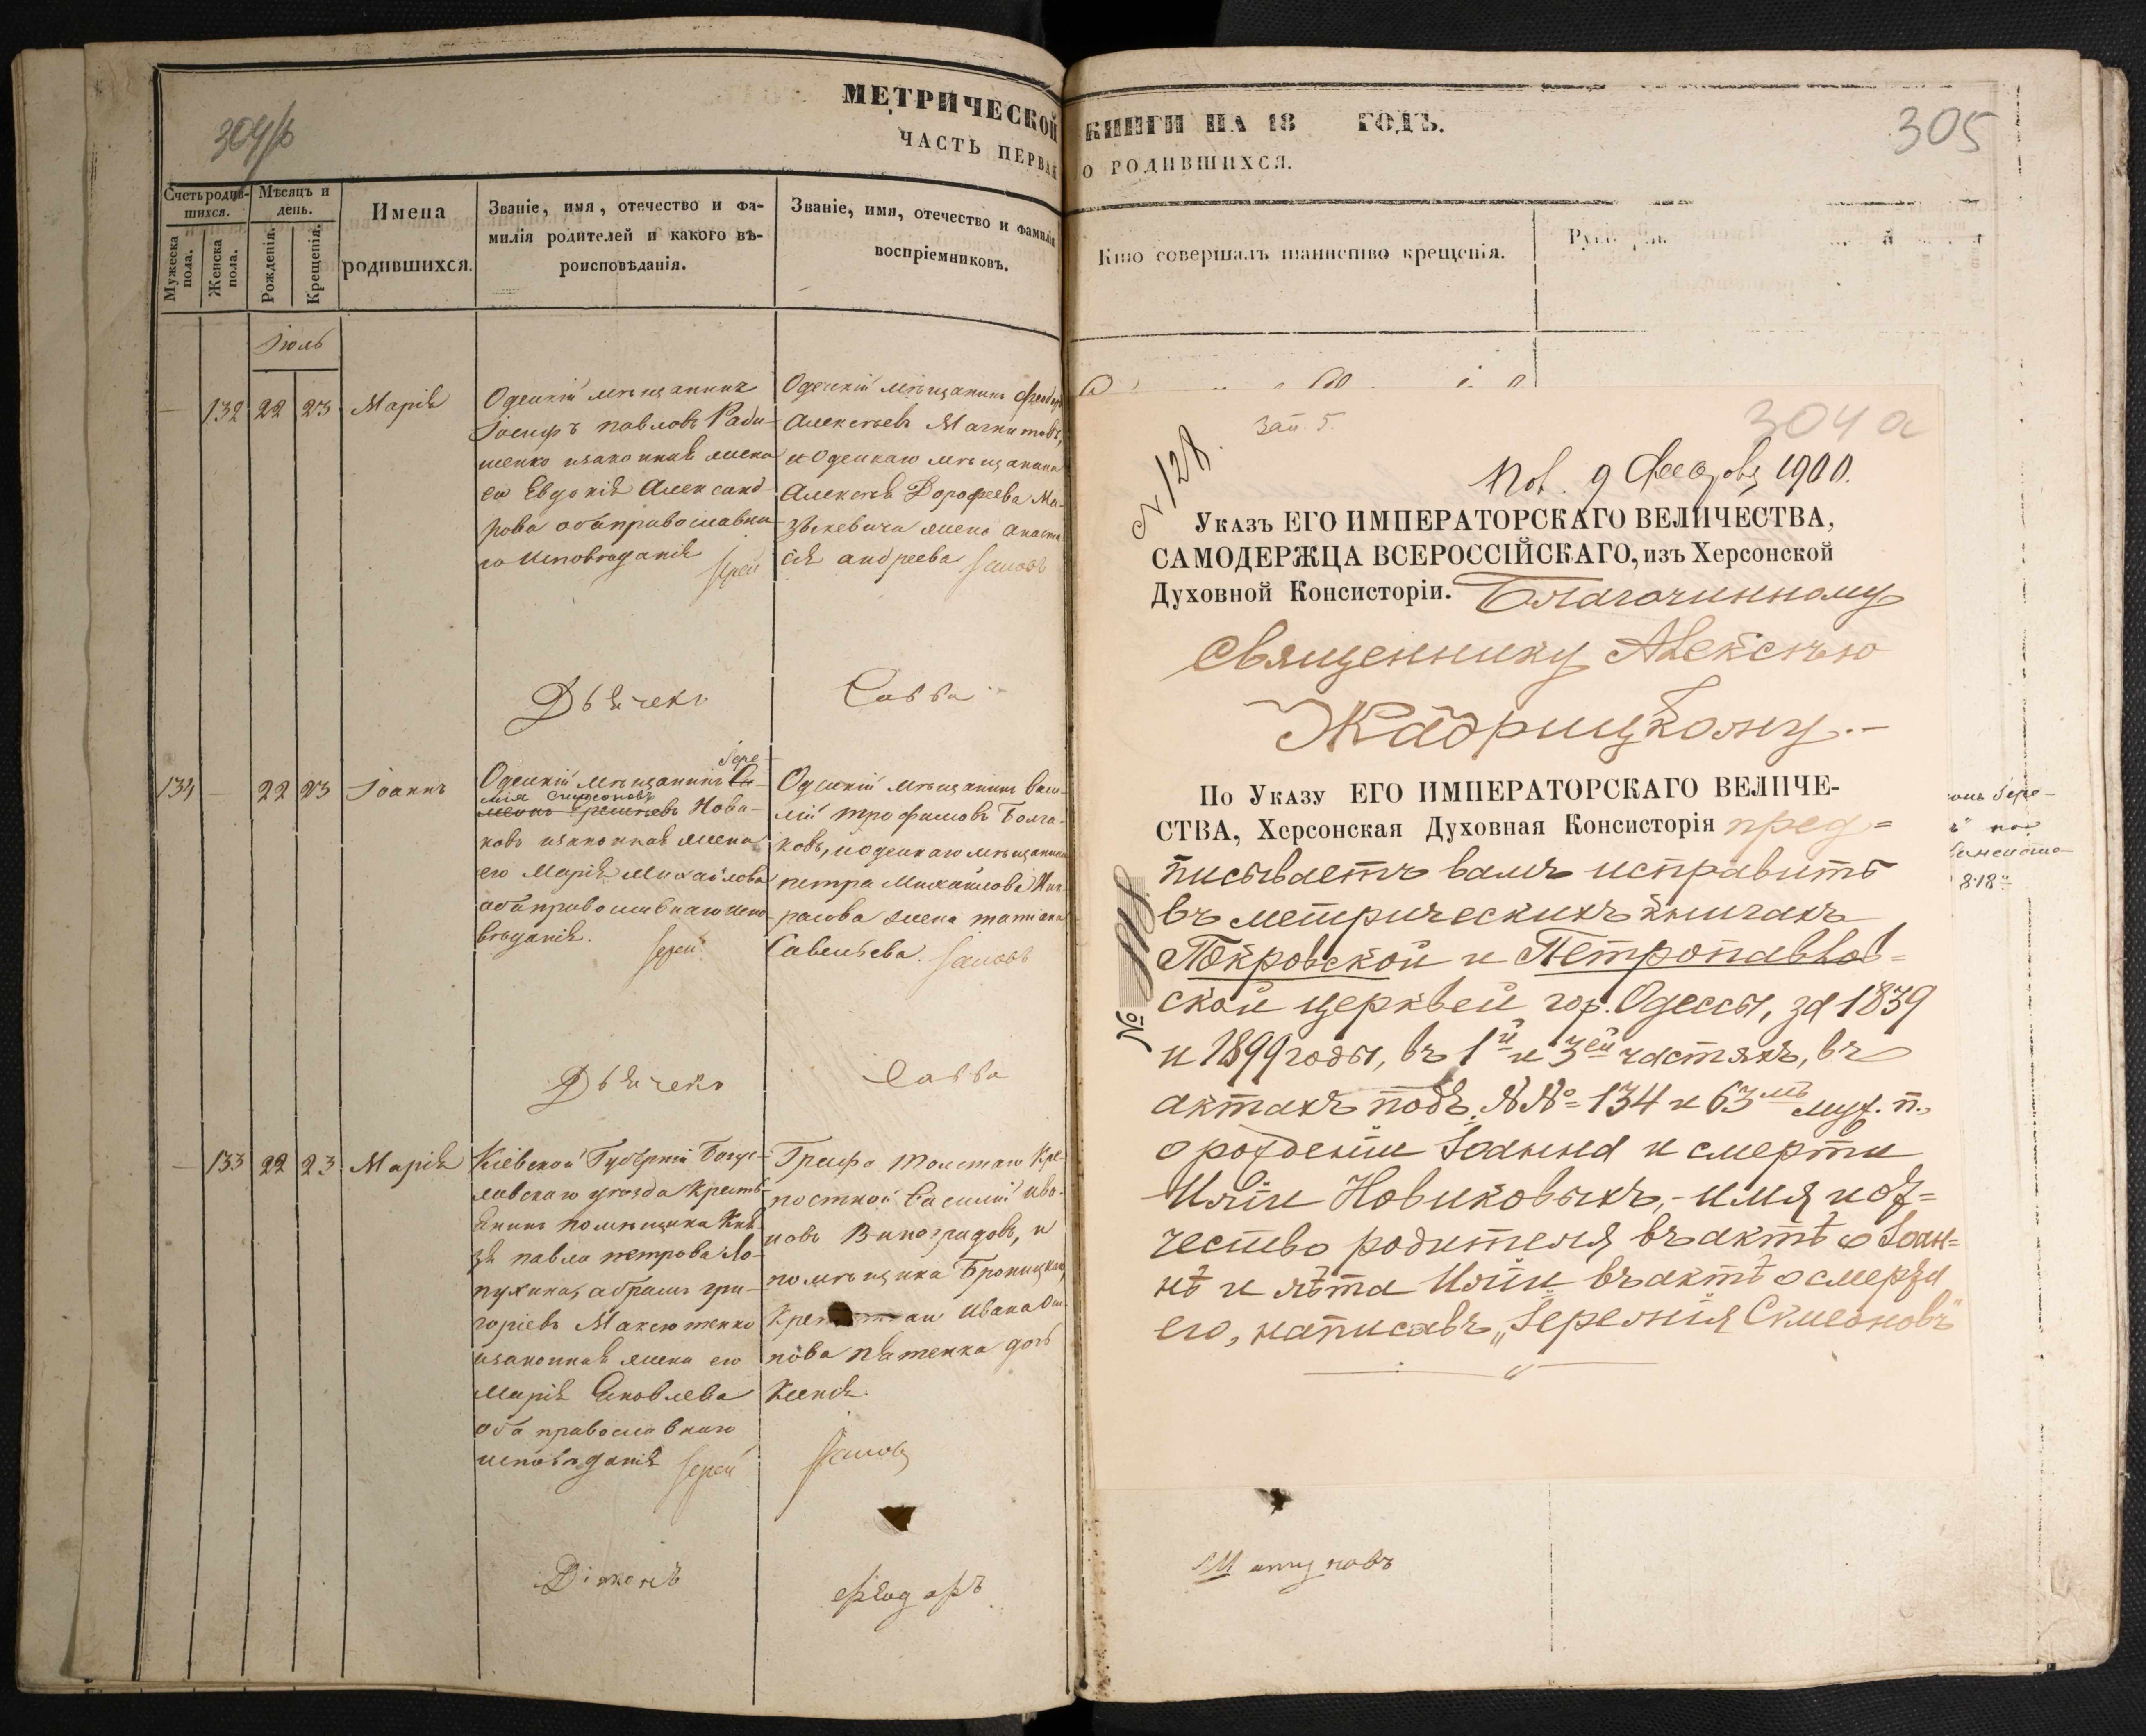 304/б
МЕТРИЧЕСКОЙ
ЧАСТЬ ПЕРВАЯ
Счетъ родив-
шихся.
Мужеска
пола.
Женска
пола.
Мѣсяцъ и
день.
Рожденія.
Крещенія.
Имена
родившихся.
Званіе, имя, отечество и фа-
милія родителей и какого вѣ-
роисповѣданія.
Званіе, имя, отечество и фамилія
воспріемниковъ.
Іюль
132 22 23 Марія
Одескій мѣщанинъ
Іосифъ павловъ Ради-
шенко изаконная жена
ео Евдокія Александ-
рова обаправославна-
го Исповѣданія
Іерей
Одескій мѣщанинъ Феодоръ
Алексѣевъ Магнитовъ,
и Одескаго мѣщанина
Алексѣя Дорофеева Ма-
зыкевича жена Анаста-
сія андреева
Дьячекъ
Савва
134 22 23 Іоаннъ
Одескій мѣщанинъ Іере-
мія Симеоновъ
Нови-
ковъ изаконная жена
его Марія Михайлова
обаправославнаго испо-
вѣданія.
Іерей
Одескій мѣщанинъ васи-
лій трофимовъ Болга-
ковъ, иодескаго мѣщанина
петра Михайлова Нек-
расова жена татіана
Савельева.
Дьячекъ
Савва
133 22 23 Марія
Кіевской Губерніи Богус-
лавскаго уѣзда Кресть-
янинъ помѣщика Кня-
зя павла петрова Ло-
пухина, абрамъ гри-
горіевъ Максютенко
изаконная жена его
Марія Яковлева
оба православнаго
исповѣданія
Іерей
Графа Толстаго Кре-
постной Василій ива-
новъ Виноградовъ, и
помѣщика Броницкаго,
Ивана Оси-
пова пятенка дочь
Ксенія.
Діаконъ
Ѳеодоръ
КНИГИ НА 18 ГОДЪ.
О РОДИВШИХСЯ.
305
Кто совершалъ таинство крещенія.
304 а
зап. 5.
№ 128.
Пол. 9 Февр 1900.
Указъ ЕГО ИМПЕРАТОРСКАГО ВЕЛИЧЕСТВА,
САМОДЕРЖЦА ВСЕРОССІЙСКАГО, изъ Херсонской
Духовной Консисторіи. Благочинному
Священнику Алексѣю
Жадрицкому.–
По Указу ЕГО ИМПЕРАТОРСКАГО ВЕЛИЧЕ-
СТВА, Херсонская Духовная Консисторія пред=
писываетъ вамъ исправить
въ метрическихъ книгахъ
Покровской и Петропавлов=
ской церквей гор. Одессы, за 1839
и 1899 годы, въ 1й и 3ей частяхъ, въ
актахъ подъ №№= 134 и 63мъ муж. п.,
о рожденіи Іоанна и смерти
Иліи Новиковыхъ,- имя и от=
чество родителя въ актѣ о Іоан=
нѣ и лѣта Иліи въ актѣ о смерти
его, написавъ „Іеремія Симеоновъ"
№